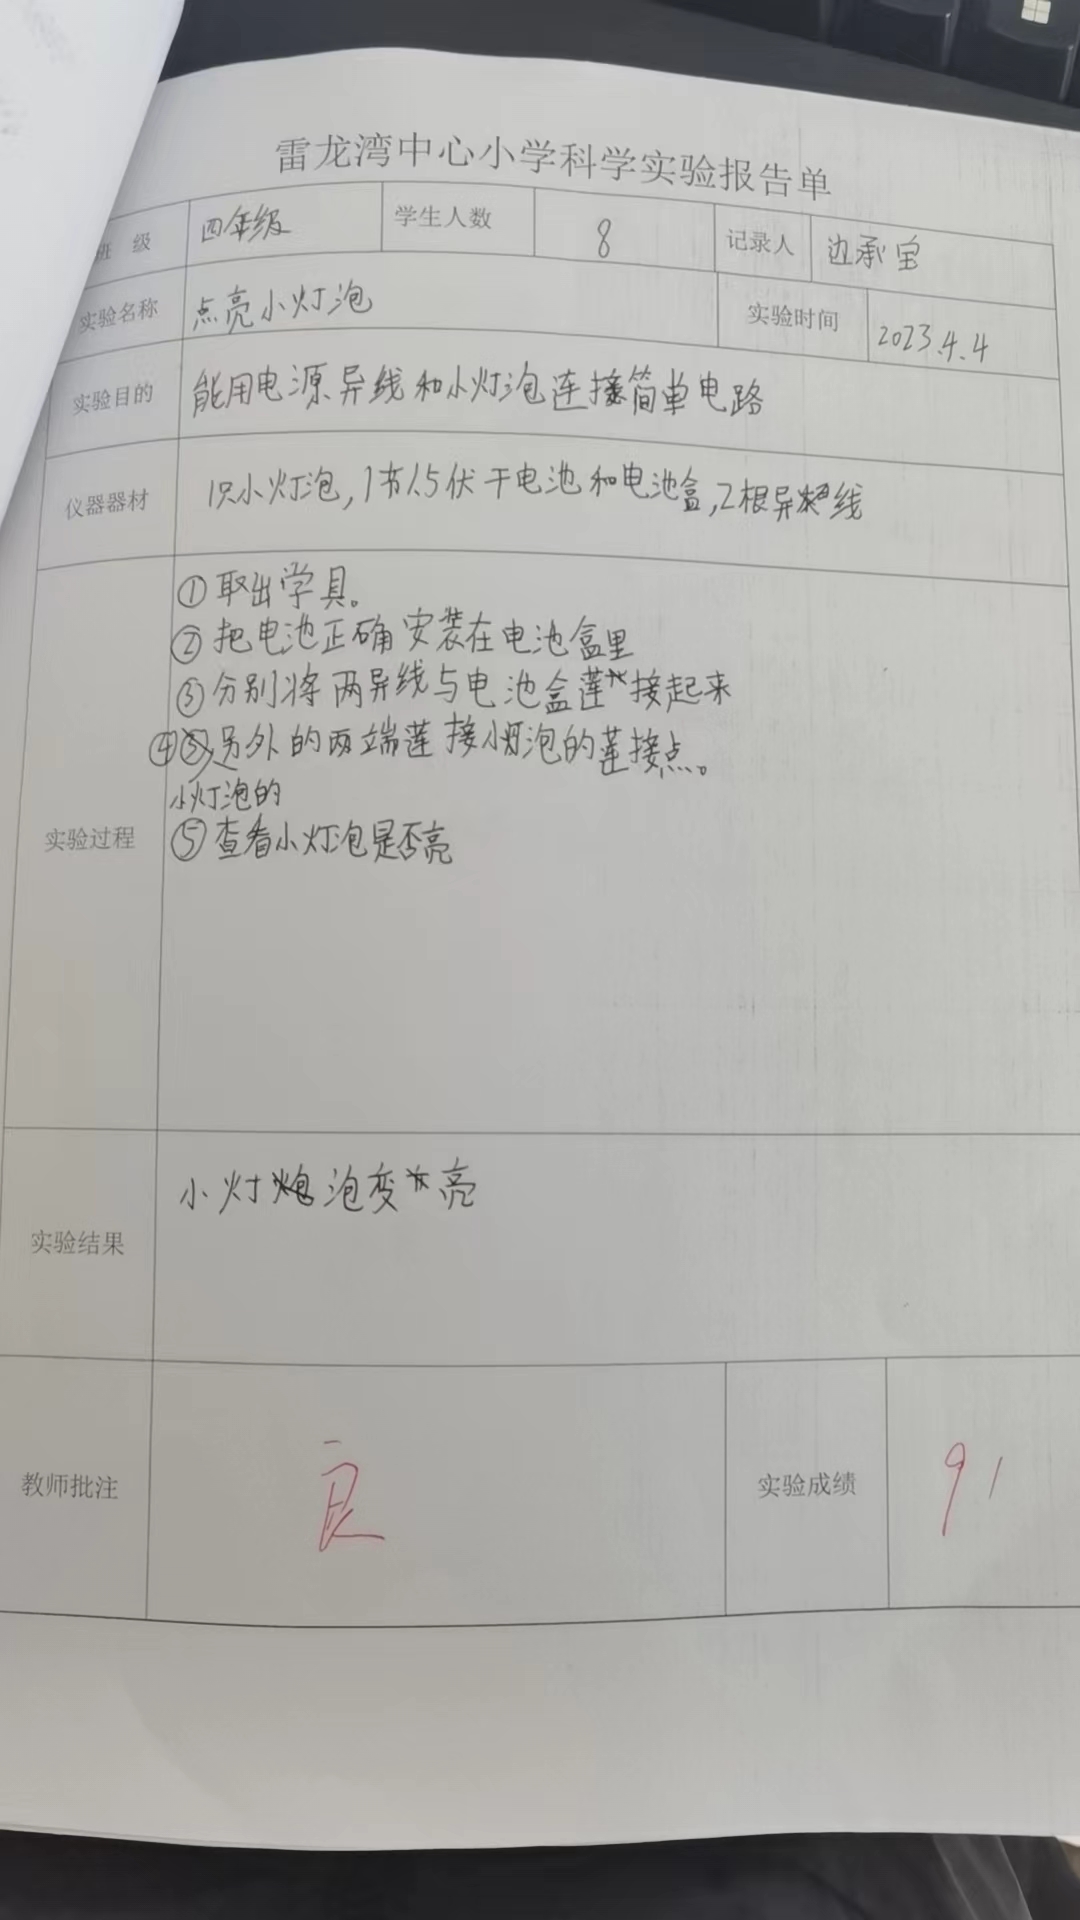 雷龙湾中心小学科学实验报告单
班 级 四年级 学生人数 8 记录人 边承宝
实验名称 点亮小灯泡 实验时间 2023.4.4
实验目的 能用电源导线和小灯泡连接简单电路
仪器器材 1只小灯泡,1节1.5伏干电池和电池盒,2根导线
①取出学具。
②把电池正确安装在电池盒里
③分别将两导线与电池盒莲接起来
④另外的两端莲接小灯泡的莲接点。
小灯泡的
实验过程
⑤查看小灯泡是否亮
小灯泡变亮
实验结果
教师批注 良 实验成绩 91